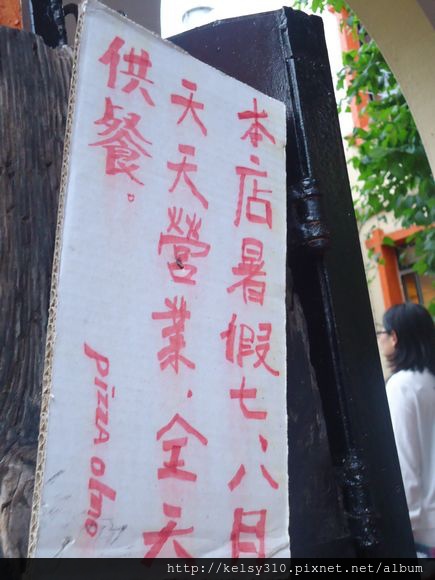 本店暑假七、八月
天天營業,全天
供餐。
Pizza olmo
http://kelsy310.pixnet.net/album